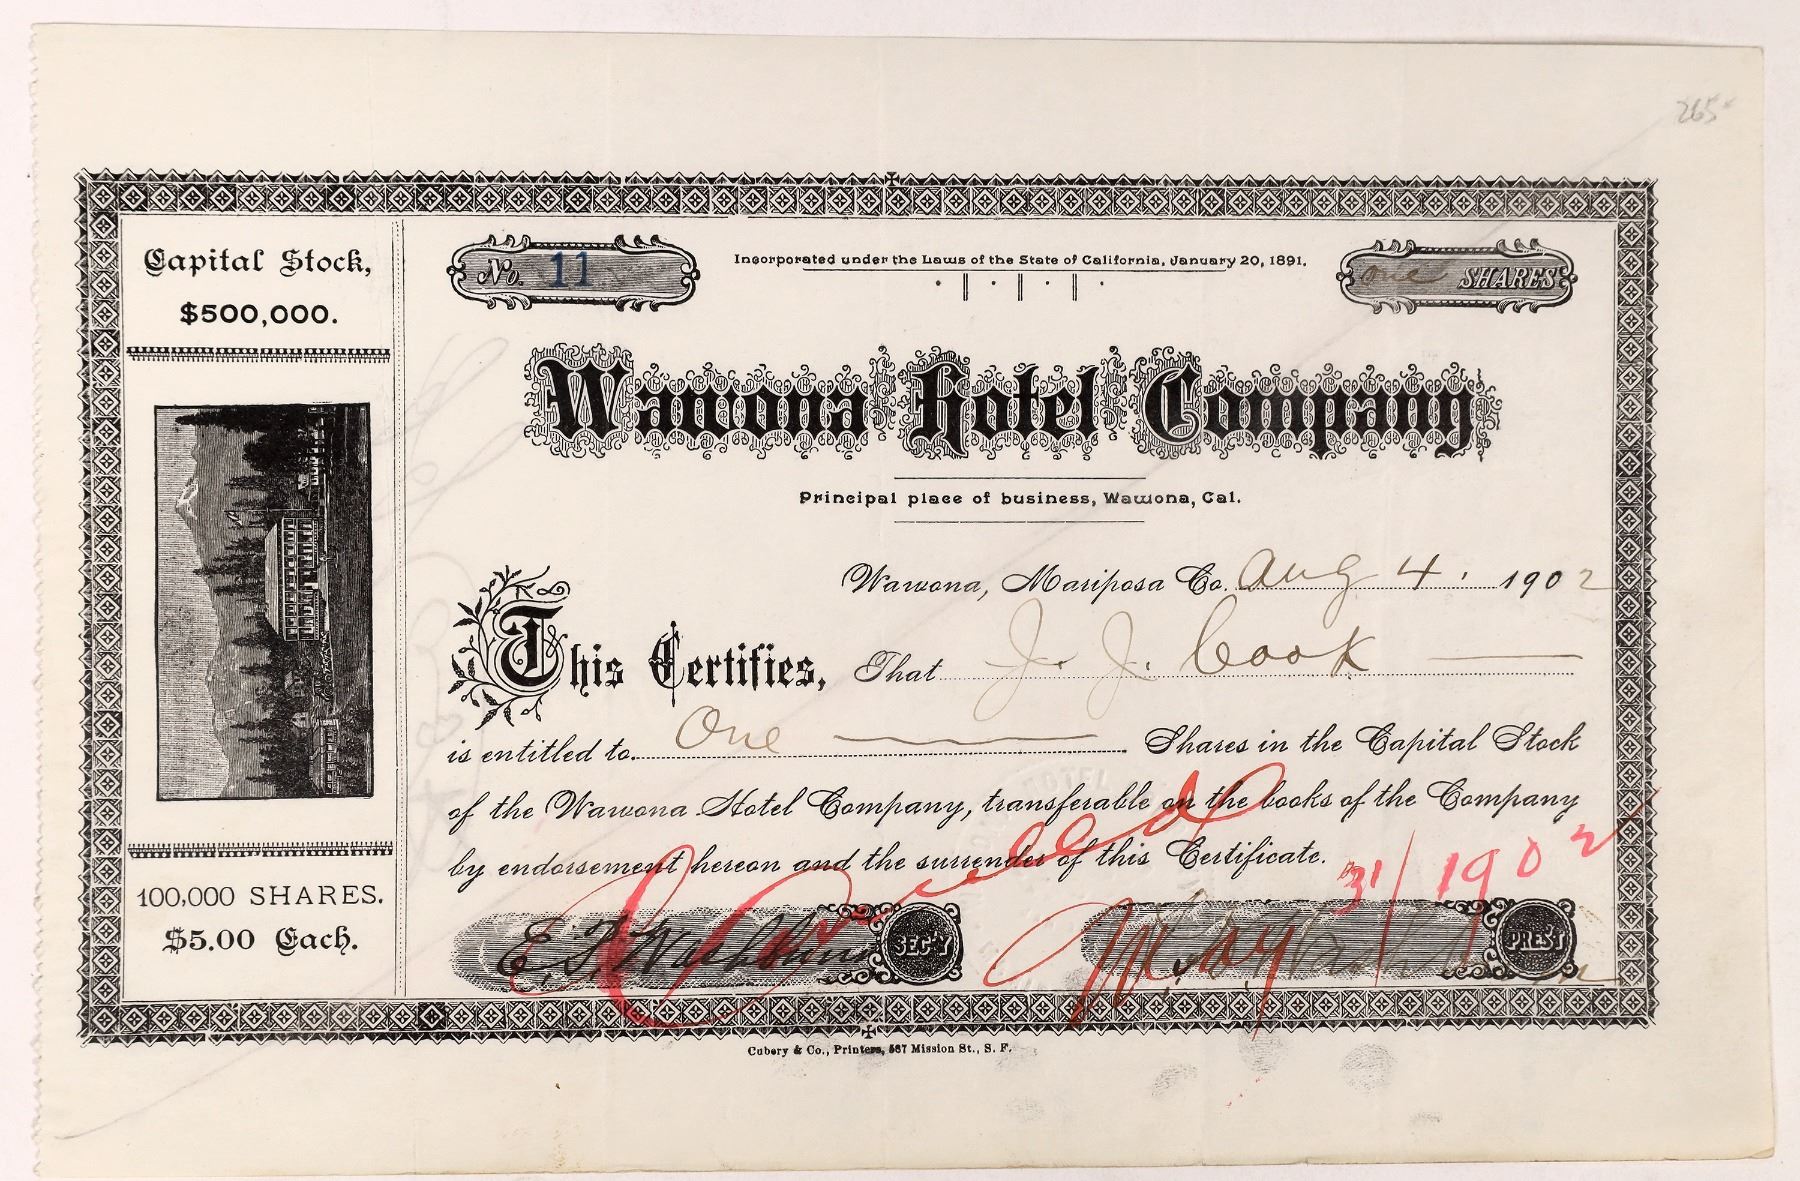 265
Capital Stock,
$500,000.
100,000 SHARES.
$5.00 Each.
No. 11
Incorporated under the Laws of the State of California, January 20, 1891.
one SHARES
Wawona Hotel Company
Principal place of business, Wawona, Cal.
Wawona, Mariposa Co. Aug 4. 1902
This Certifies, That J. J. Cook
is entitled to One Shares in the Capital Stock
of the Wawona Hotel Company, transferable on the books of the Company
by endorsement hereon and the surrender of this Certificate.
Cancelled
31/1902
E. P. Washburn SEC'Y
PRES'T
Cubery & Co., Printers, 587 Mission St., S. F.